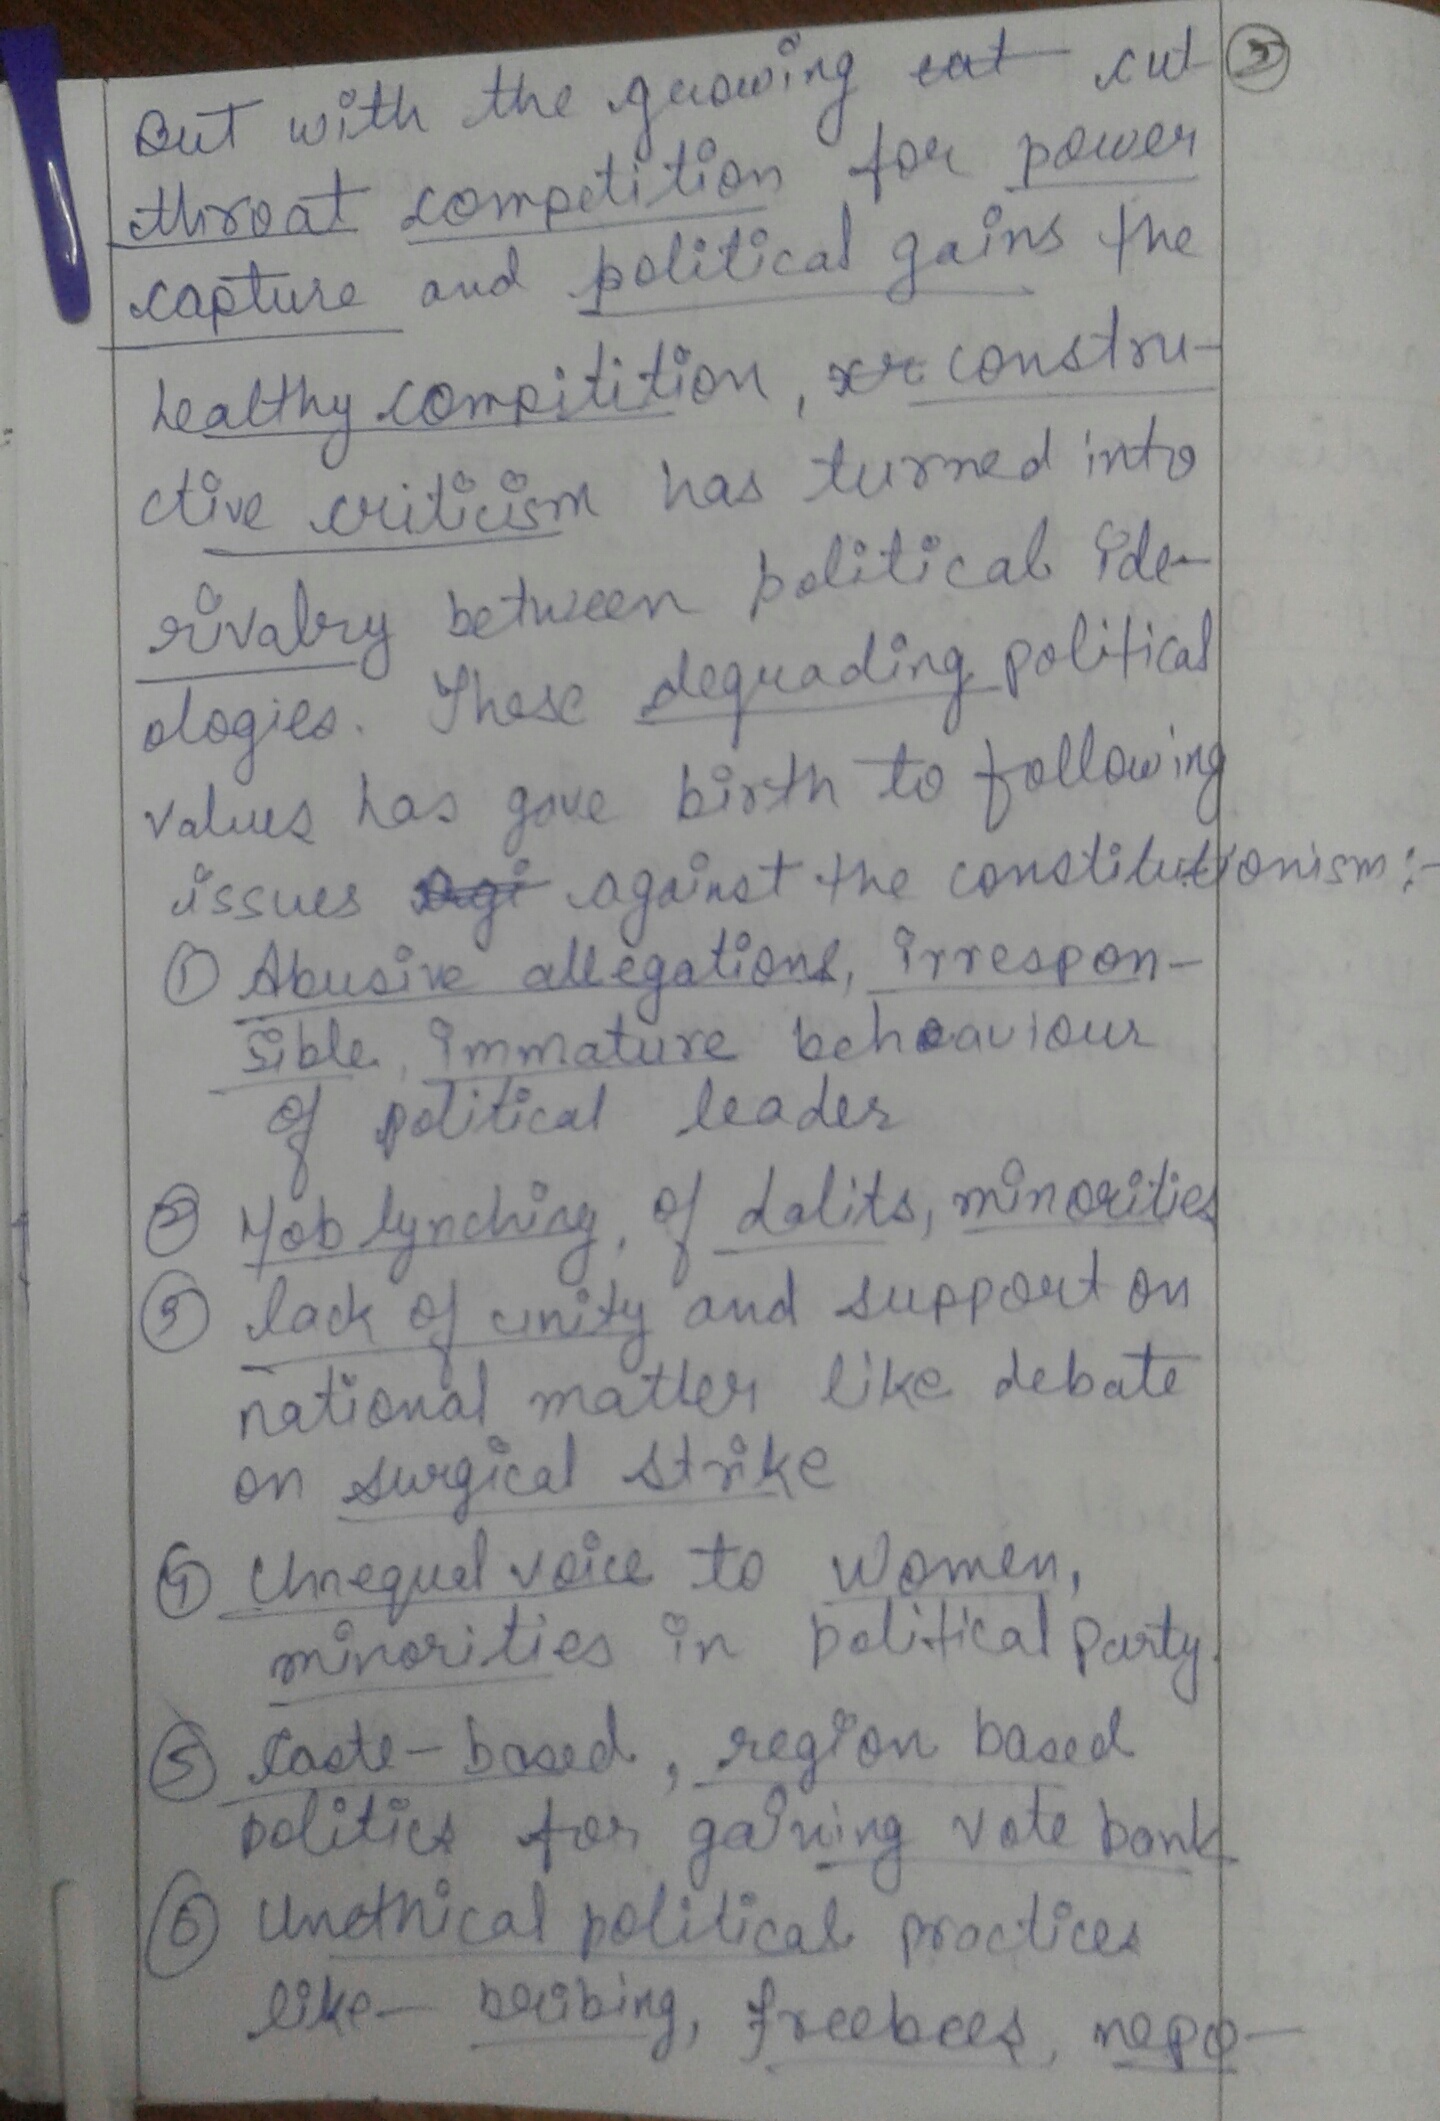 But with the growing cat cut 3
throat competition for power
capture and political gains the
healthy compitition, xr constru-
ctive criticism has turned into
rivalry between political ide-
ologies. These degrading political
values has gave birth to following
issues agi against the constitutionism:-
① Abusive allegations, irrespon-
sible, immature behaaviour
of political leader
② Mob lynching, of dalits, minorities
③ lack of unity and support on
national matter like debate
on surgical strike
④ Unequal voice to women,
minorities in political party.
⑤ Caste-based, region based
politics for gaining vote bank
⑥ Unethical political practices
like- bribing, freebees, nepo-